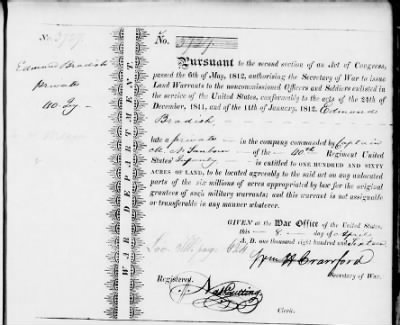 No. 3727.
Edmund Bradish
private
40 Inf
WAR DEPARTMENT.
No. 3727.
Pursuant to the second section of an Act of Congress,
passed the 6th of May, 1812, authorising the Secretary of War to issue
Land Warrants to the noncommissioned Officers and Soldiers enlisted in
the service of the United States, conformably to the acts of the 24th of
December, 1811, and of the 11th of January, 1812, Edmund
Bradish
late a private in the company commanded by Captain
of the 40th Regiment United
States Infantry is entitled to ONE HUNDRED AND SIXTY
ACRES OF LAND, to be located agreeably to the said act on any unlocated
parts of the six millions of acres appropriated by law for the original
grantees of such military warrants; and this warrant is not assignable
or transferable in any manner whatever.
GIVEN at the War Office of the United States,
this 8 day of April
A. D. one thousand eight hundred and
Wm H Crawford
Secretary of War.
Registered.
Nat Cutting
Clerk.